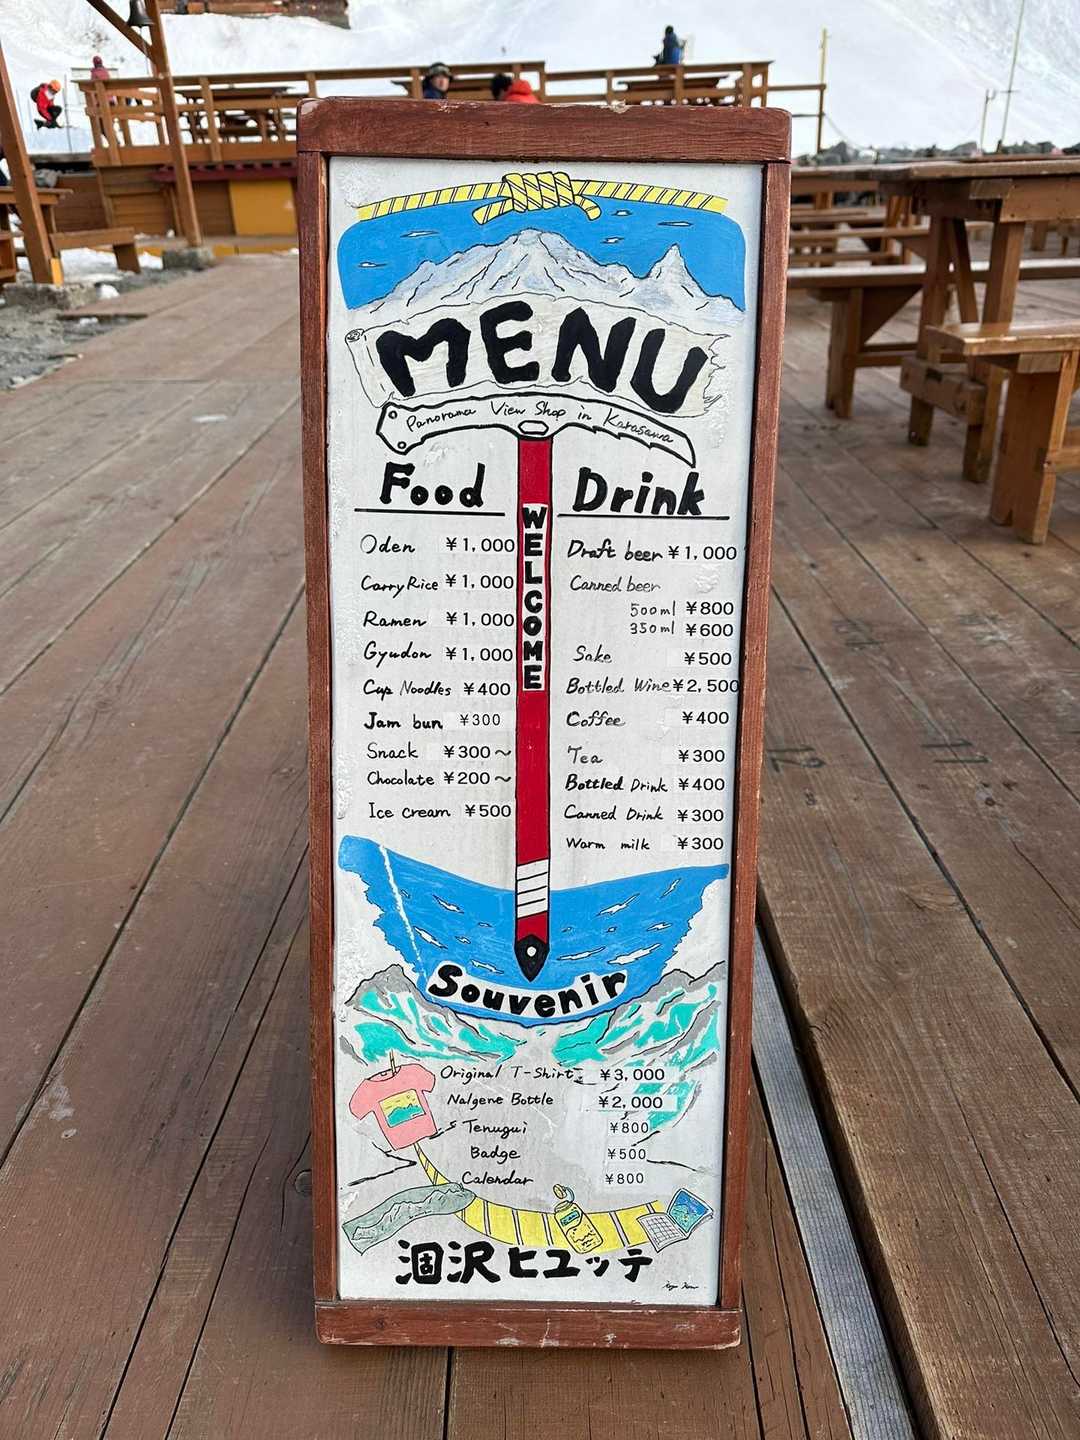 MENU
Panorama View Shop in Karasawa
WELCOME
Food
Oden ¥1,000
CarryRice ¥1,000
Ramen ¥1,000
Gyudon ¥1,000
Cup Noodles ¥400
Jam bun ¥300
Snack ¥300～
Chocolate ¥200～
Ice cream ¥500
Drink
Draft beer ¥1,000
Canned beer
500ml ¥800
350ml ¥600
Sake ¥500
Bottled Wine ¥2,500
Coffee ¥400
Tea ¥300
Bottled Drink ¥400
Canned Drink ¥300
Warm milk ¥300
Souvenir
Original T-Shirt ¥3,000
Nalgene Bottle ¥2,000
Tenugui ¥800
Badge ¥500
Calendar ¥800
涸沢ヒュッテ